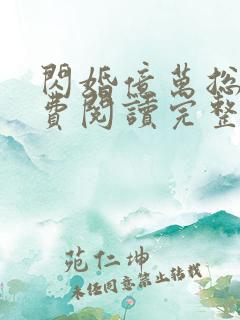 閃婚億萬總
費閱讀完整
苑仁坤
未经同意禁止转载